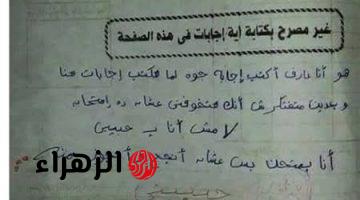 غير مصرح بكتابة أية إجابات فى هذه الصفحة
هو أنا عارف أكتب إجابة جوه لما هكتب إجابات هنا
وبعدين متفتكريش أنك هتخوفنى عشان ده امتحان
لا مش أنا يا حبيبى
أنا بمتحن بس عشان أنجح
الزهراء